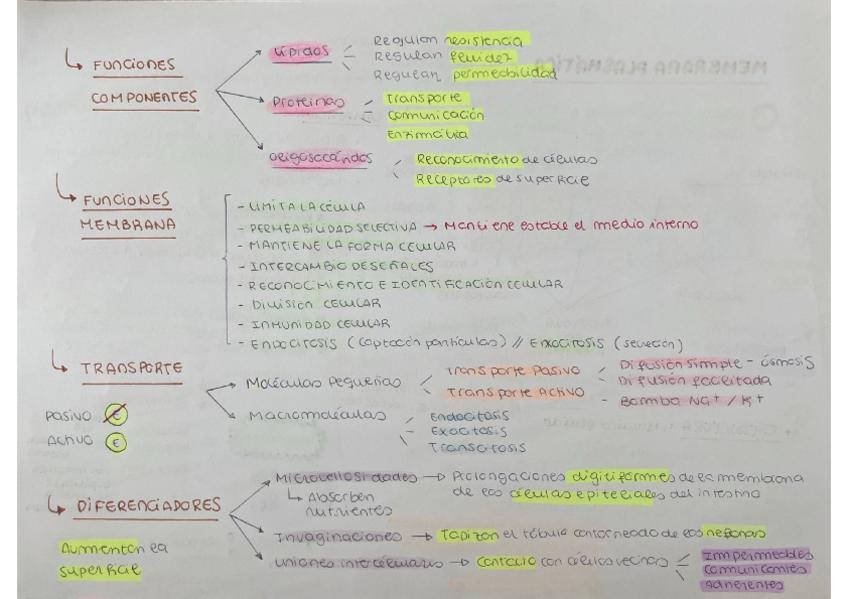 ↳ FUNCIONES
COMPONENTES
Lípidos
Regulan resistencia
Regulan fluidez
Regulan permeabilidad
Proteínas
Transporte
Comunicación
Enzimática
Oligosacáridos
Reconocimiento de células
Receptores de superficie
↳ FUNCIONES
MEMBRANA
- LIMITA LA CÉLULA
- PERMEABILIDAD SELECTIVA → Mantiene estable el medio interno
- MANTIENE LA FORMA CELULAR
- INTERCAMBIO DE SEÑALES
- RECONOCIMIENTO E IDENTIFICACIÓN CELULAR
- DIVISIÓN CELULAR
- INMUNIDAD CELULAR
- ENDOCITOSIS (captación partículas) // EXOCITOSIS (secreción)
↳ TRANSPORTE
PASIVO E
ACTIVO E
Moléculas Pequeñas
Transporte Pasivo
Difusión simple - ósmosis
Difusión facilitada
Transporte Activo
- Bomba Na+ / K+
Macromoléculas
Endocitosis
Exocitosis
Transcitosis
↳ DIFERENCIADORES
Aumentan la
superficie
Microvellosidades → Prolongaciones digitiformes de la membrana
de las células epiteliales del intestino
↳ Absorben
nutrientes
Invaginaciones → Tapizan el túbulo contorneado de las nefronas
Uniones intercelulares → Contacto con células vecinas
Impermeables
Comunicantes
Adherentes
MEMBRANA PLASMÁTICA